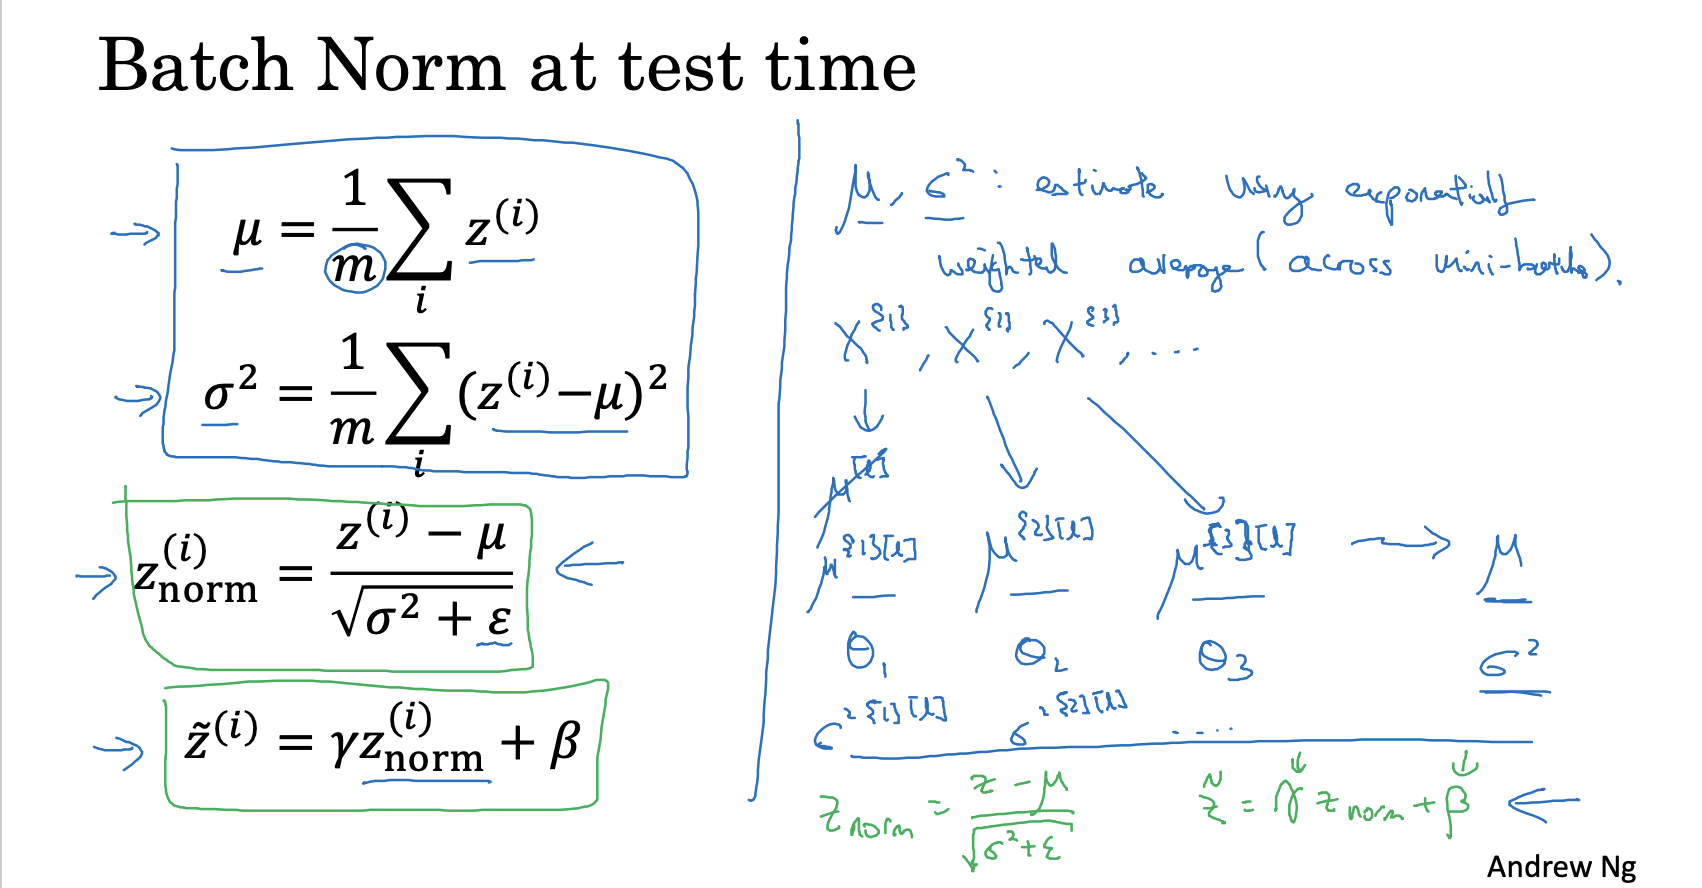 Batch Norm at test time
→ μ = 1/m ∑_i z^(i)
→ σ² = 1/m ∑_i (z^(i)−μ)²
→ z_norm^(i) = (z^(i) − μ) / √(σ² + ε) ←
→ z̃^(i) = γz_norm^(i) + β
μ, σ² : estimate using exponentially
weighted average (across mini-batches).
X^{1}, X^{2}, X^{3}, ....
μ^{1}[l] μ^{2}[l] μ^{3}[l] → μ
θ₁ θ₂ θ₃ σ²
σ²^{1}[l] σ²^{2}[l] ....
z_norm = (z − μ) / √(σ² + ε) z̃ = γ z_norm + β ←
Andrew Ng